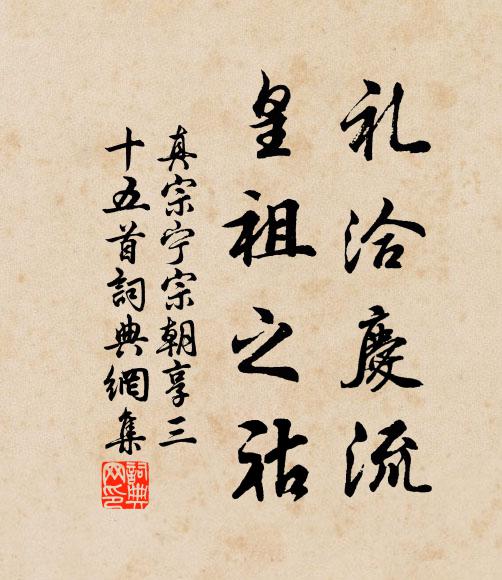 礼洽慶流
皇祖之祜
真宗宁宗朝享三
十五首詞典網集
詞典网印